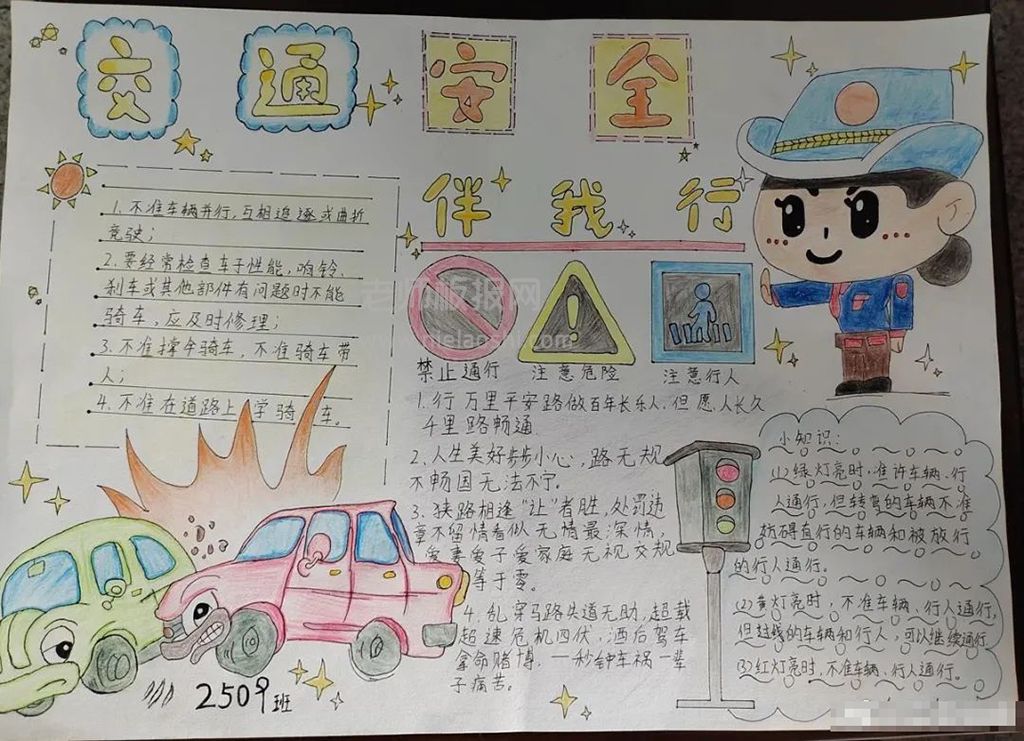 交通安全
伴我行
1.不准车辆并行,互相追逐或曲折
竞驶;
2.要经常检查车子性能,响铃、
刹车或其他部件有问题时不能
骑车,应及时修理;
3.不准撑伞骑车,不准骑车带
人;
4.不准在道路上学骑车。
禁止通行 注意危险 注意行人
1.行万里平安路做百年长乐人.但愿人长久
千里路畅通
2.人生美好步步小心,路无规
不畅国无法不宁.
3.狭路相逢“让”者胜,处罚违
章不留情看似无情最深情,
爱妻爱子爱家庭无视交规
等于零。
4.乱穿马路失道无助,超载
超速危机四伏,酒后驾车
拿命赌博.一秒钟车祸一辈
子痛苦。
小知识:
(1)绿灯亮时,准许车辆、行
人通行,但转弯的车辆不准
妨碍直行的车辆和被放行
的行人通行。
(2)黄灯亮时,不准车辆、行人通行,
但过线的车辆和行人,可以继续通行
(3)红灯亮时,不准车辆、行人通行。
2509班